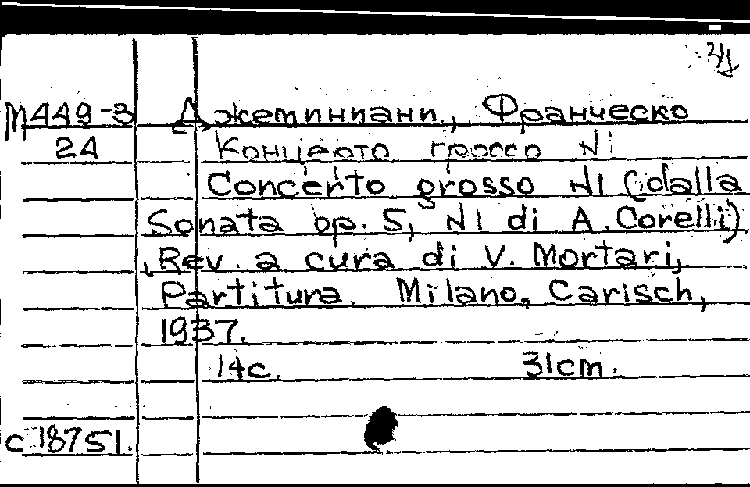 М449-3 Джеминиани, Франческо
24 Концерто гроссо N1
Concerto grosso N1 (dalla
Sonata op. 5, N1 di A. Corelli)
Rev. a cura di V. Mortari,
Partitura. Milano, Carisch,
1937.
14c. 31cm.
c 18751.